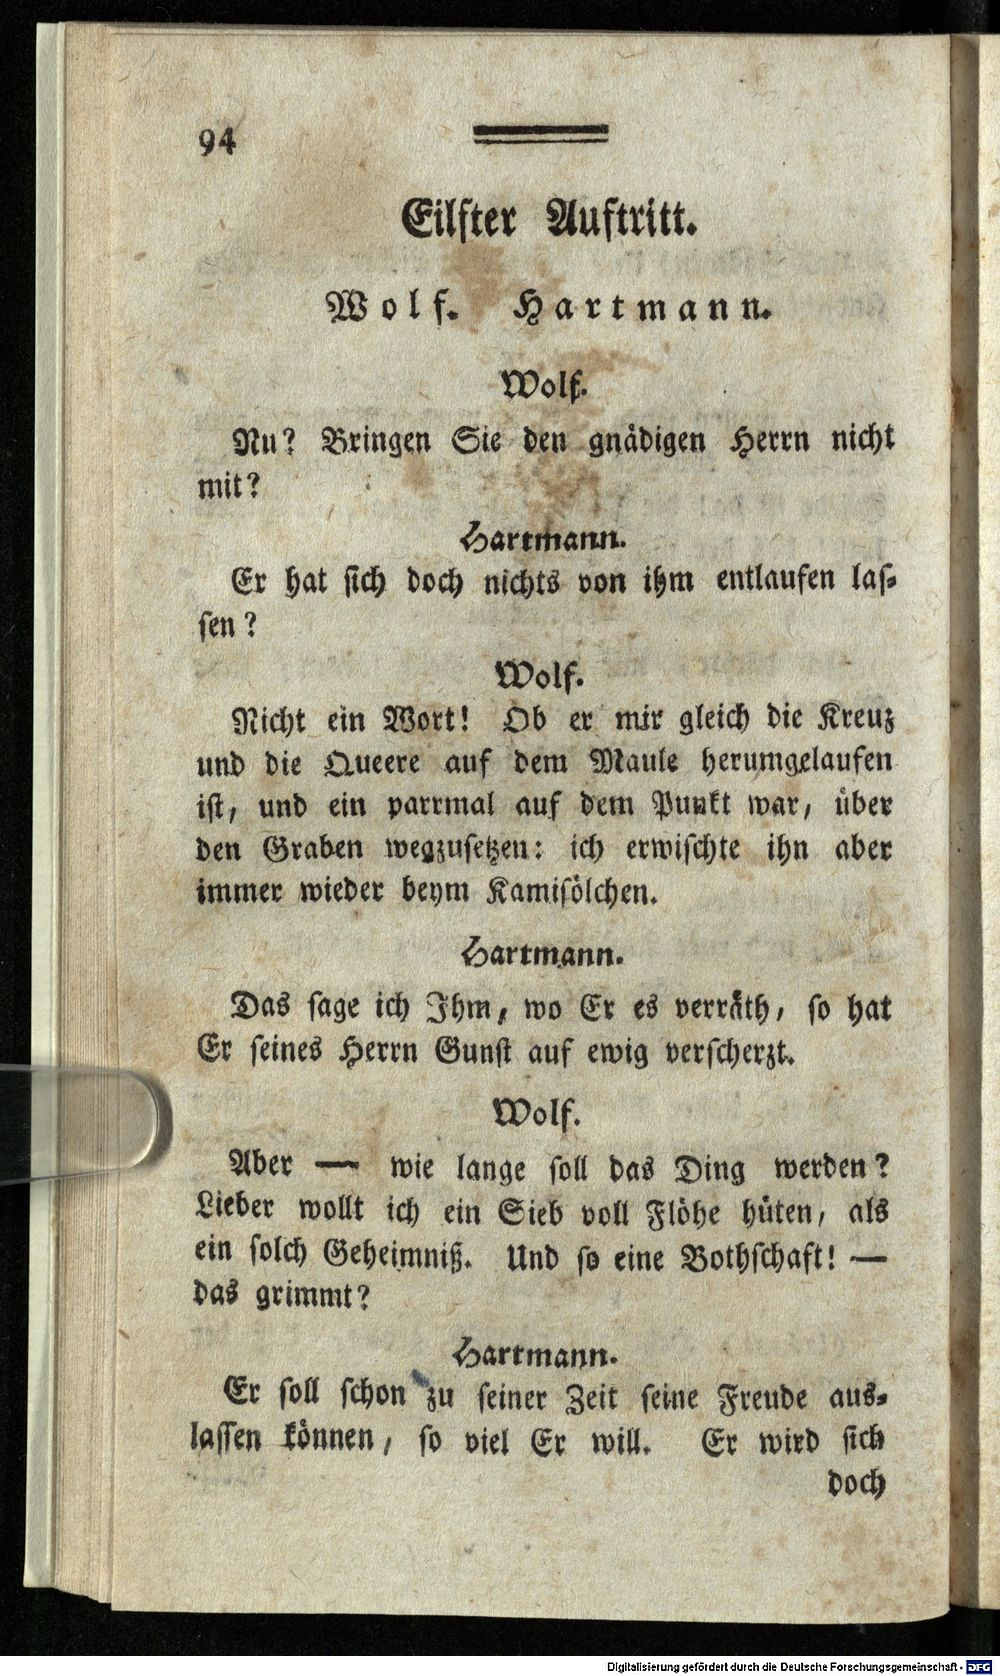 94
Eilfter Auftritt.
Wolf. Hartmann.
Wolf.
Nu? Bringen Sie den gnädigen Herrn nicht
mit?
Hartmann.
Er hat sich doch nichts von ihm entlaufen las-
sen?
Wolf.
Nicht ein Wort! Ob er mir gleich die Kreuz
und die Queere auf dem Maule herumgelaufen
ist, und ein parrmal auf dem Punkt war, über
den Graben wegzusetzen: ich erwischte ihn aber
immer wieder beym Kamisölchen.
Hartmann.
Das sage ich Ihm, wo Er es verräth, so hat
Er seines Herrn Gunst auf ewig verscherzt.
Wolf.
Aber — wie lange soll das Ding werden?
Lieber wollt ich ein Sieb voll Flöhe hüten, als
ein solch Geheimniß. Und so eine Bothschaft! —
das grimmt?
Hartmann.
Er soll schon zu seiner Zeit seine Freude aus-
lassen können, so viel Er will. Er wird sich
doch
Digitalisierung gefördert durch die Deutsche Forschungsgemeinschaft - DFG